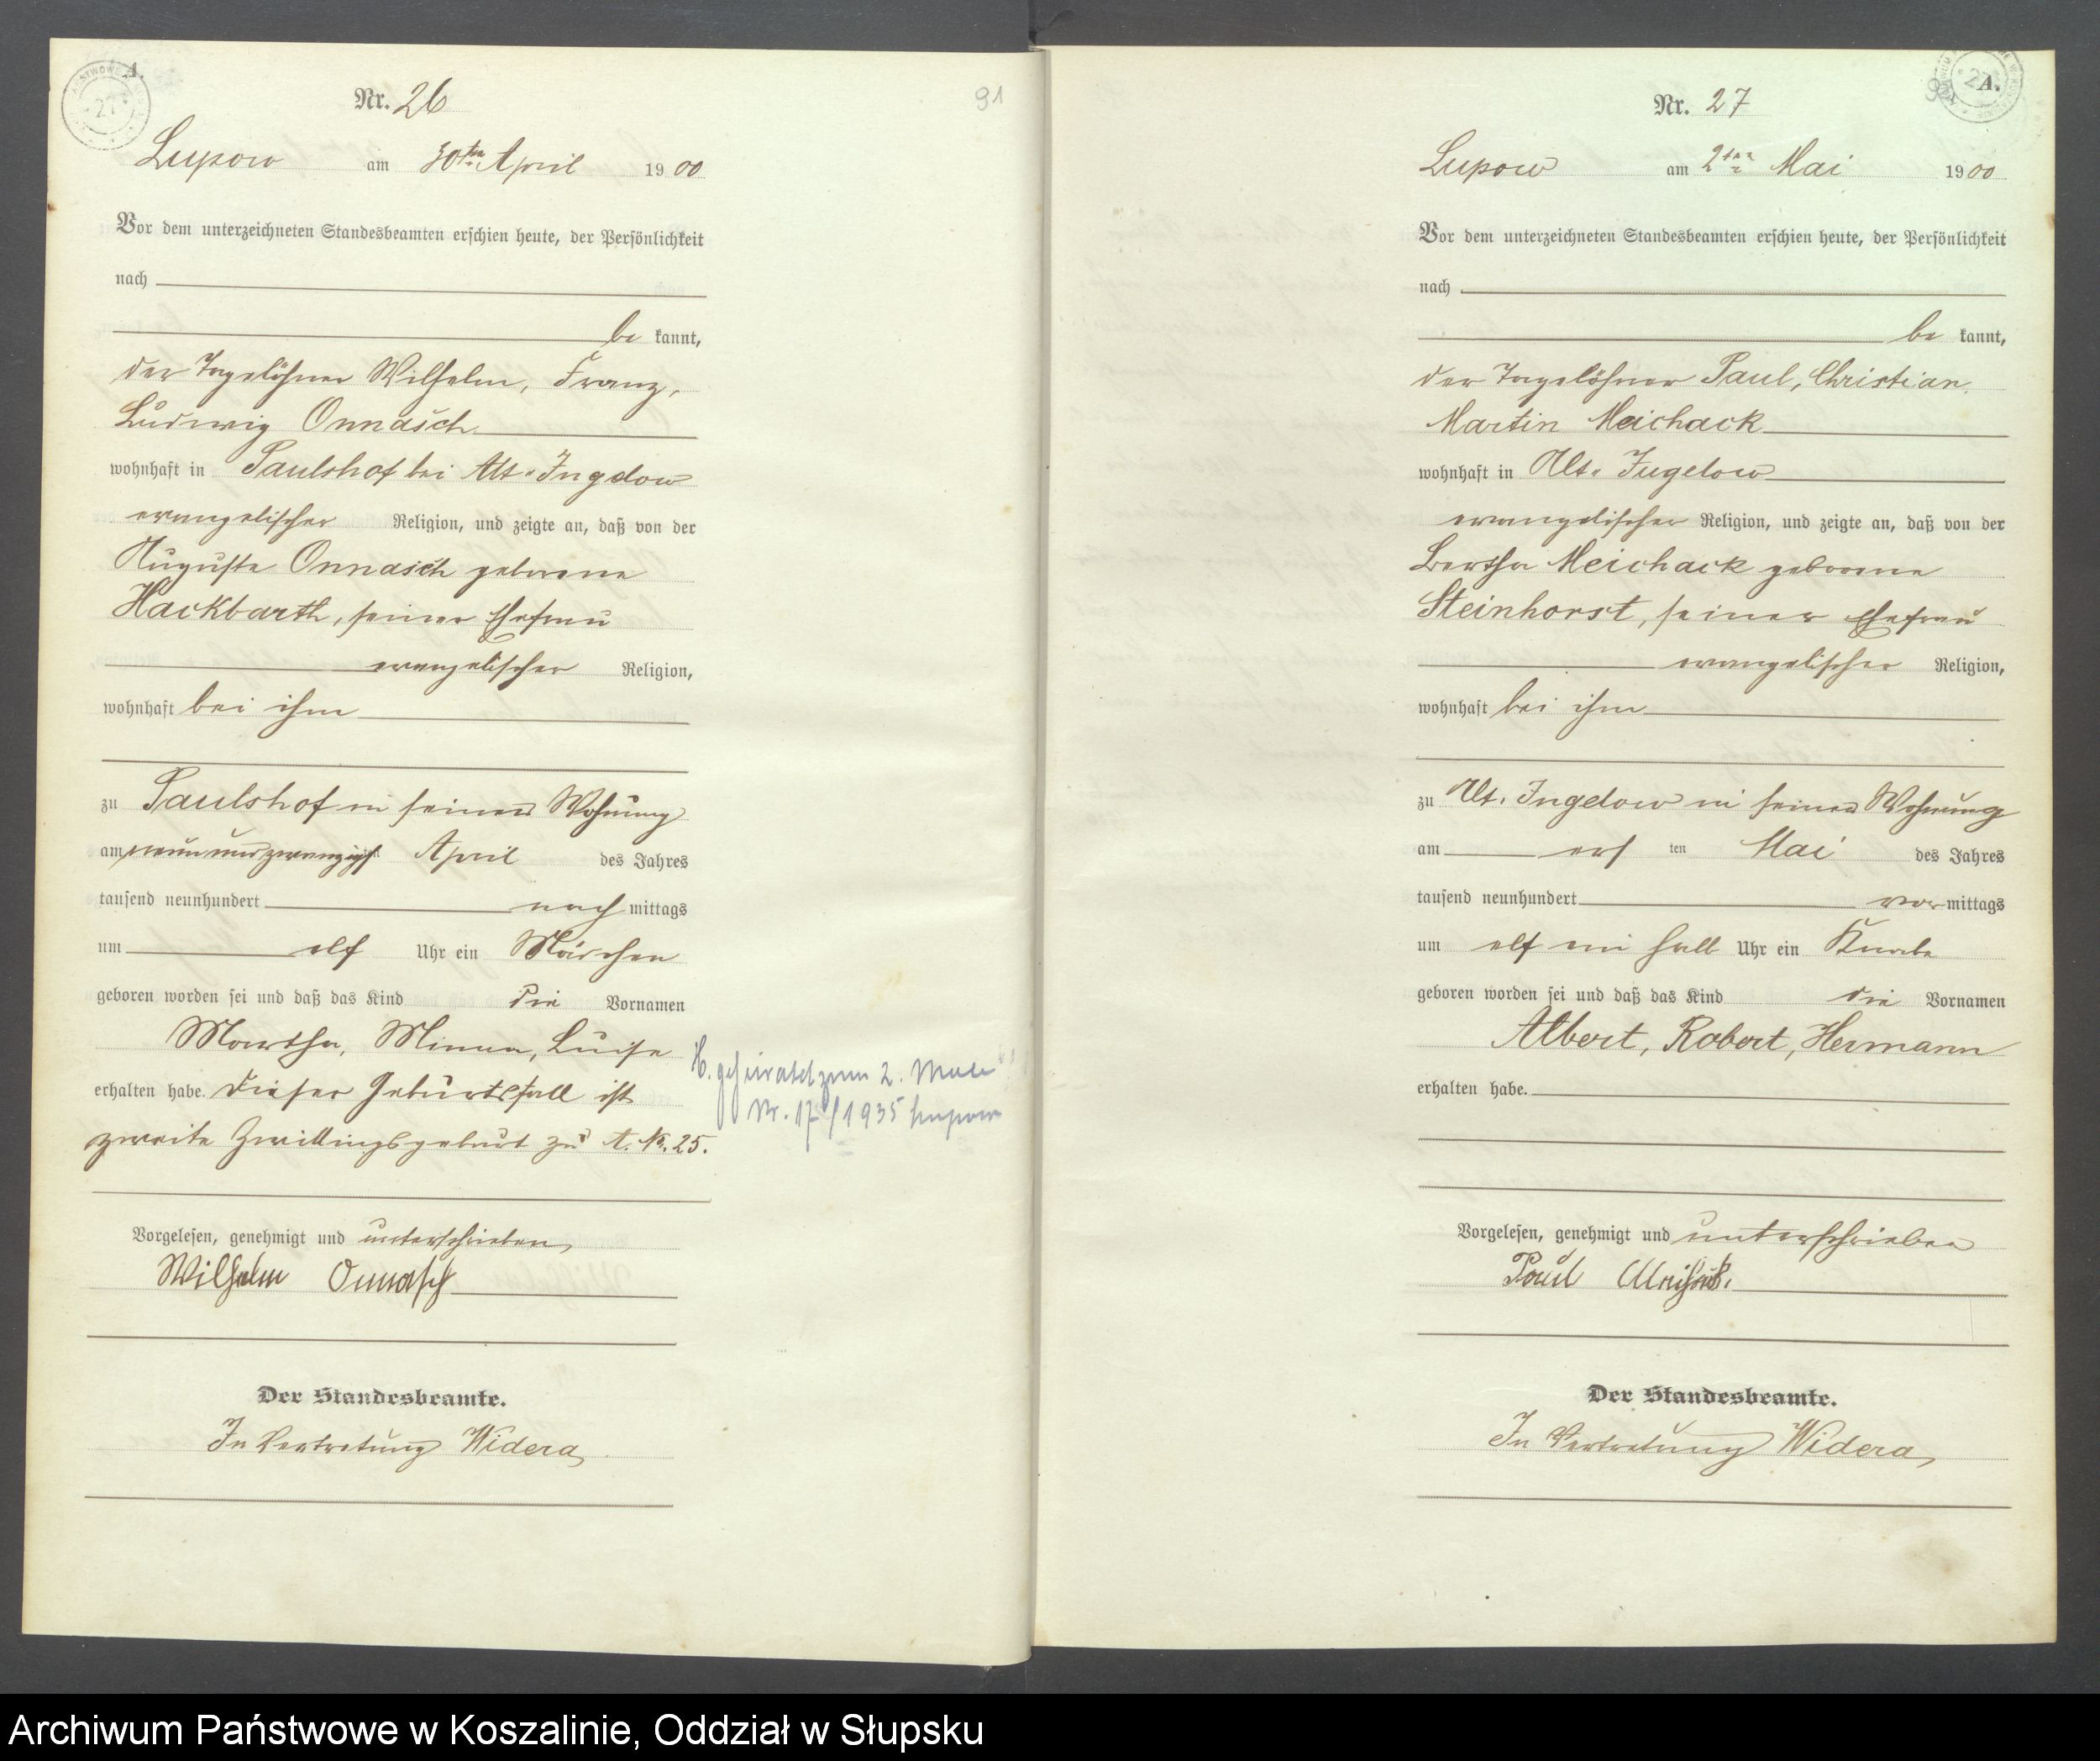 A.
Nr. 26
Lupow am 30ten April 1900
Vor dem unterzeichneten Standesbeamten erschien heute, der Persönlichkeit
nach
be kannt,
der Tagelöhner Wilhelm, Franz,
Ludwig Onnasch
wohnhaft in Paulshof bei Alt-Jugelow
evangelischer Religion, und zeigte an, daß von der
Auguste Onnasch geborene
Hackbarth, seiner Ehefrau
evangelischer Religion,
wohnhaft bei ihm
zu Paulshof in seiner Wohnung
am neunundzwanzigst April des Jahres
tausend neunhundert nach mittags
um elf Uhr ein Mädchen
geboren worden sei und daß das Kind die Vornamen
Martha, Minna, Luise
erhalten habe. Dieser Geburtsfall ist
zweite Zwillingsgeburt zu A. No. 25.
Vorgelesen, genehmigt und unterschrieben
Wilhelm Onnasch
Der Standesbeamte.
In Vertretung Widera
91
geheiratet zum 2. Male
Nr. 17/1935 Lupow
A.
Nr. 27
Lupow am 2ten Mai 1900
Vor dem unterzeichneten Standesbeamten erschien heute, der Persönlichkeit
nach
be kannt,
der Tagelöhner Paul, Christian
Martin Meichack
wohnhaft in Alt-Jugelow
evangelischer Religion, und zeigte an, daß von der
Bertha Meichack geborene
Steinhorst, seiner Ehefrau
evangelischer Religion,
wohnhaft bei ihm
zu Alt-Jugelow in seiner Wohnung
am ers ten Mai des Jahres
tausend neunhundert vor mittags
um elf ein halb Uhr ein Knabe
geboren worden sei und daß das Kind die Vornamen
Albert, Robert, Hermann
erhalten habe.
Vorgelesen, genehmigt und unterschrieben
Paul
Der Standesbeamte.
In Vertretung Widera
Archiwum Państwowe w Koszalinie, Oddział w Słupsku